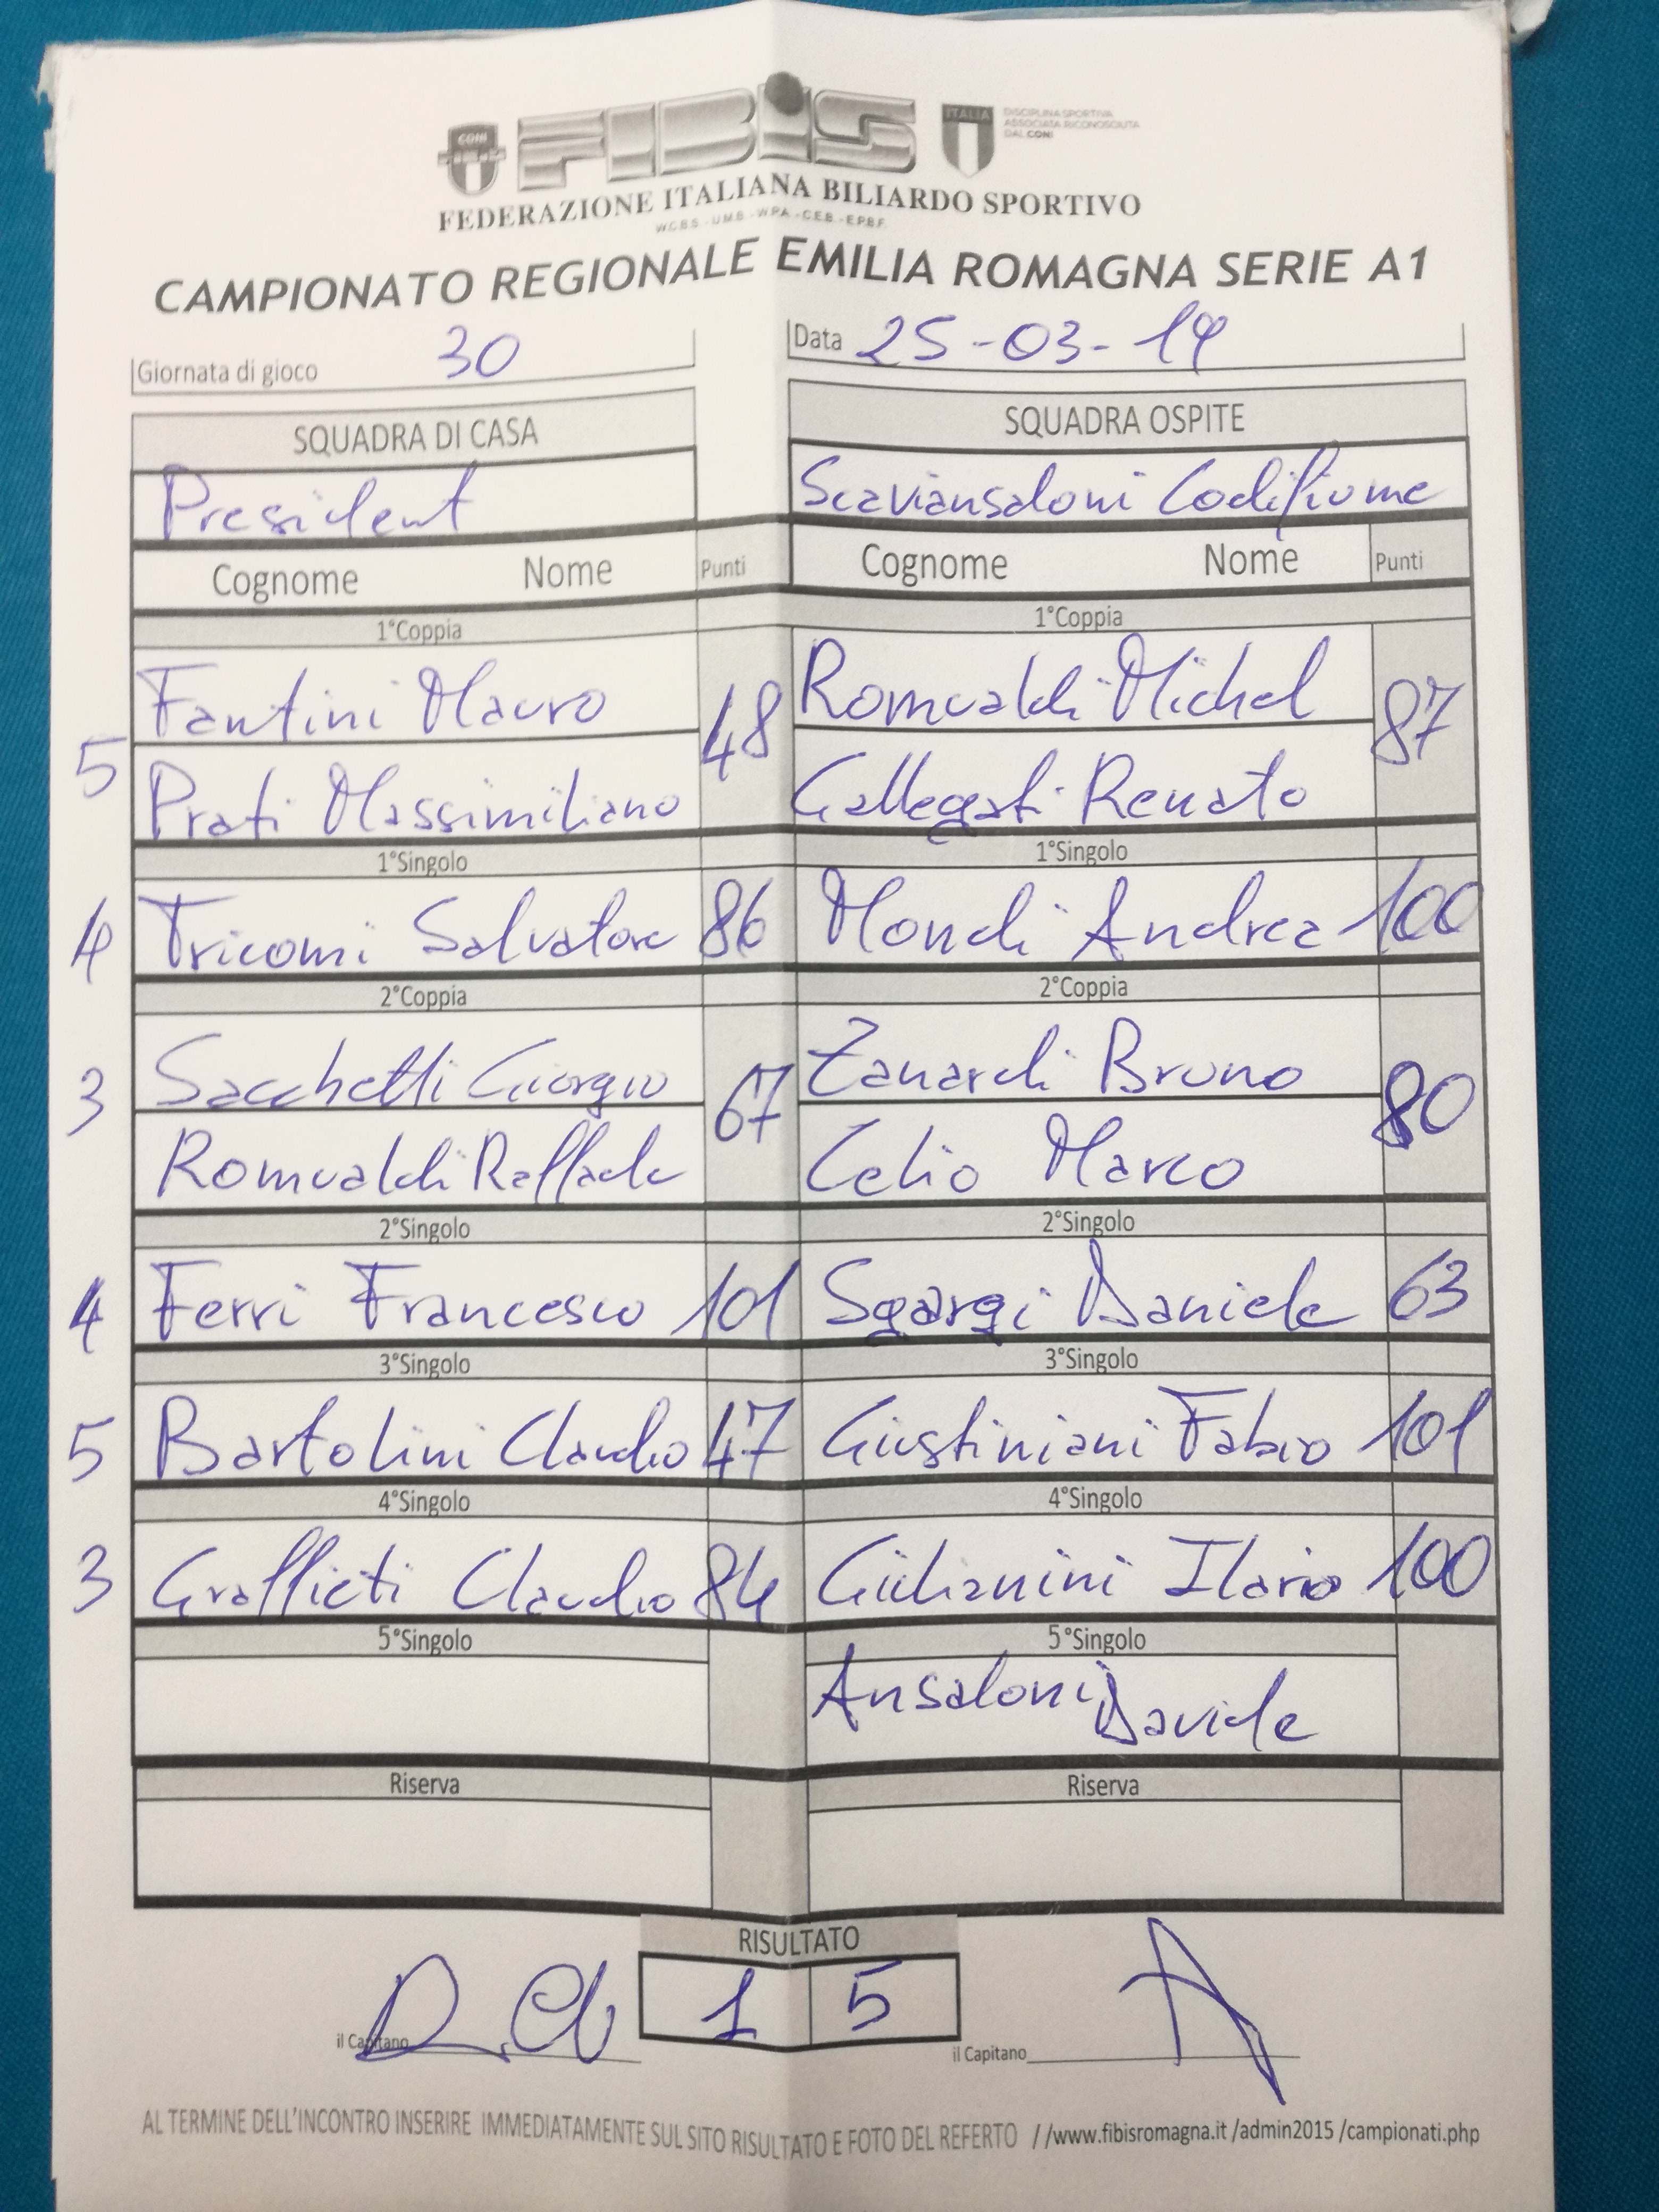 CONI
FIBiS
ITALIA
DISCIPLINA SPORTIVA
ASSOCIATA RICONOSCIUTA
DAL CONI
FEDERAZIONE ITALIANA BILIARDO SPORTIVO
W.C.B.S. - U.M.B. - W.P.A. - C.E.B. - E.P.B.F.
CAMPIONATO REGIONALE EMILIA ROMAGNA SERIE A1
Giornata di gioco 30 Data 25-03-19
SQUADRA DI CASA SQUADRA OSPITE
President Scaviansaloni Codifiume
Cognome Nome Punti Cognome Nome Punti
1°Coppia 1°Coppia
Fantini Mauro Romualdi Michel
5 48 87
Prati Massimiliano Gallegati Renato
1°Singolo 1°Singolo
4 Tricomi Salvatore 86 Mondi Andrea 100
2°Coppia 2°Coppia
Sacchetti Giorgio Zanardi Bruno
3 67 80
Romualdi Raffaele Celio Marco
2°Singolo 2°Singolo
4 Ferri Francesco 101 Sgargi Daniele 63
3°Singolo 3°Singolo
5 Bartolini Claudio 47 Giustiniani Fabio 101
4°Singolo 4°Singolo
3 Graffieti Claudio 84 Giulianini Ilario 100
5°Singolo 5°Singolo
Ansaloni Davide
Riserva Riserva
RISULTATO
1 5
il Capitano il Capitano
AL TERMINE DELL'INCONTRO INSERIRE IMMEDIATAMENTE SUL SITO RISULTATO E FOTO DEL REFERTO //www.fibisromagna.it /admin2015 /campionati.php